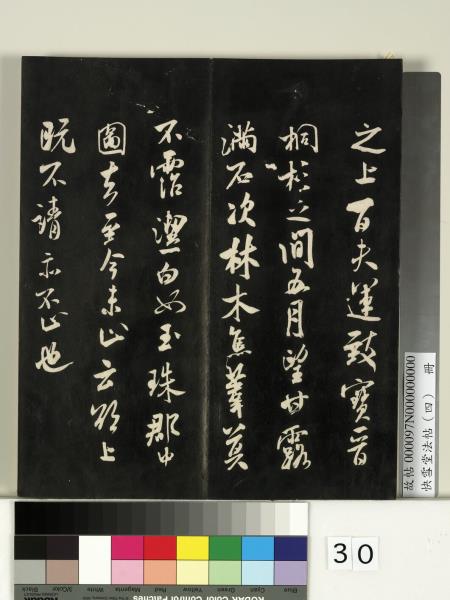 之上百夫運致寶晉
桐杉之間五月望甘露
滿石次林木焦葦莫
不霑潔白如玉珠郡中
圖去至今未止云欲上
既不請亦不止也
故帖 000097N000000000
快雪堂法帖(四) 冊
30
Blue Cyan Green Yellow Red Magenta White 3/Color Black
KODAK Color Control Patches